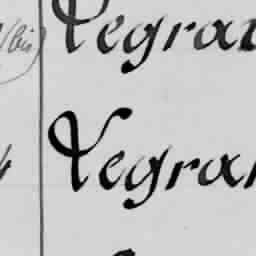 bis) Legran
Legran